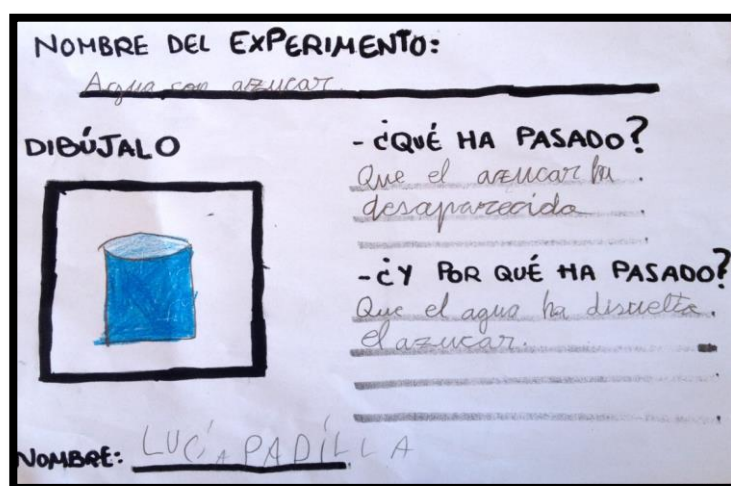 NOMBRE DEL EXPERIMENTO:
Agua con azucar.
DIBÚJALO
- ¿QUÉ HA PASADO?
Que el azucar ha
desaparecido
- ¿Y POR QUÉ HA PASADO?
Que el agua ha disuelto
el azucar.
NOMBRE: LUCÍA PADILLA